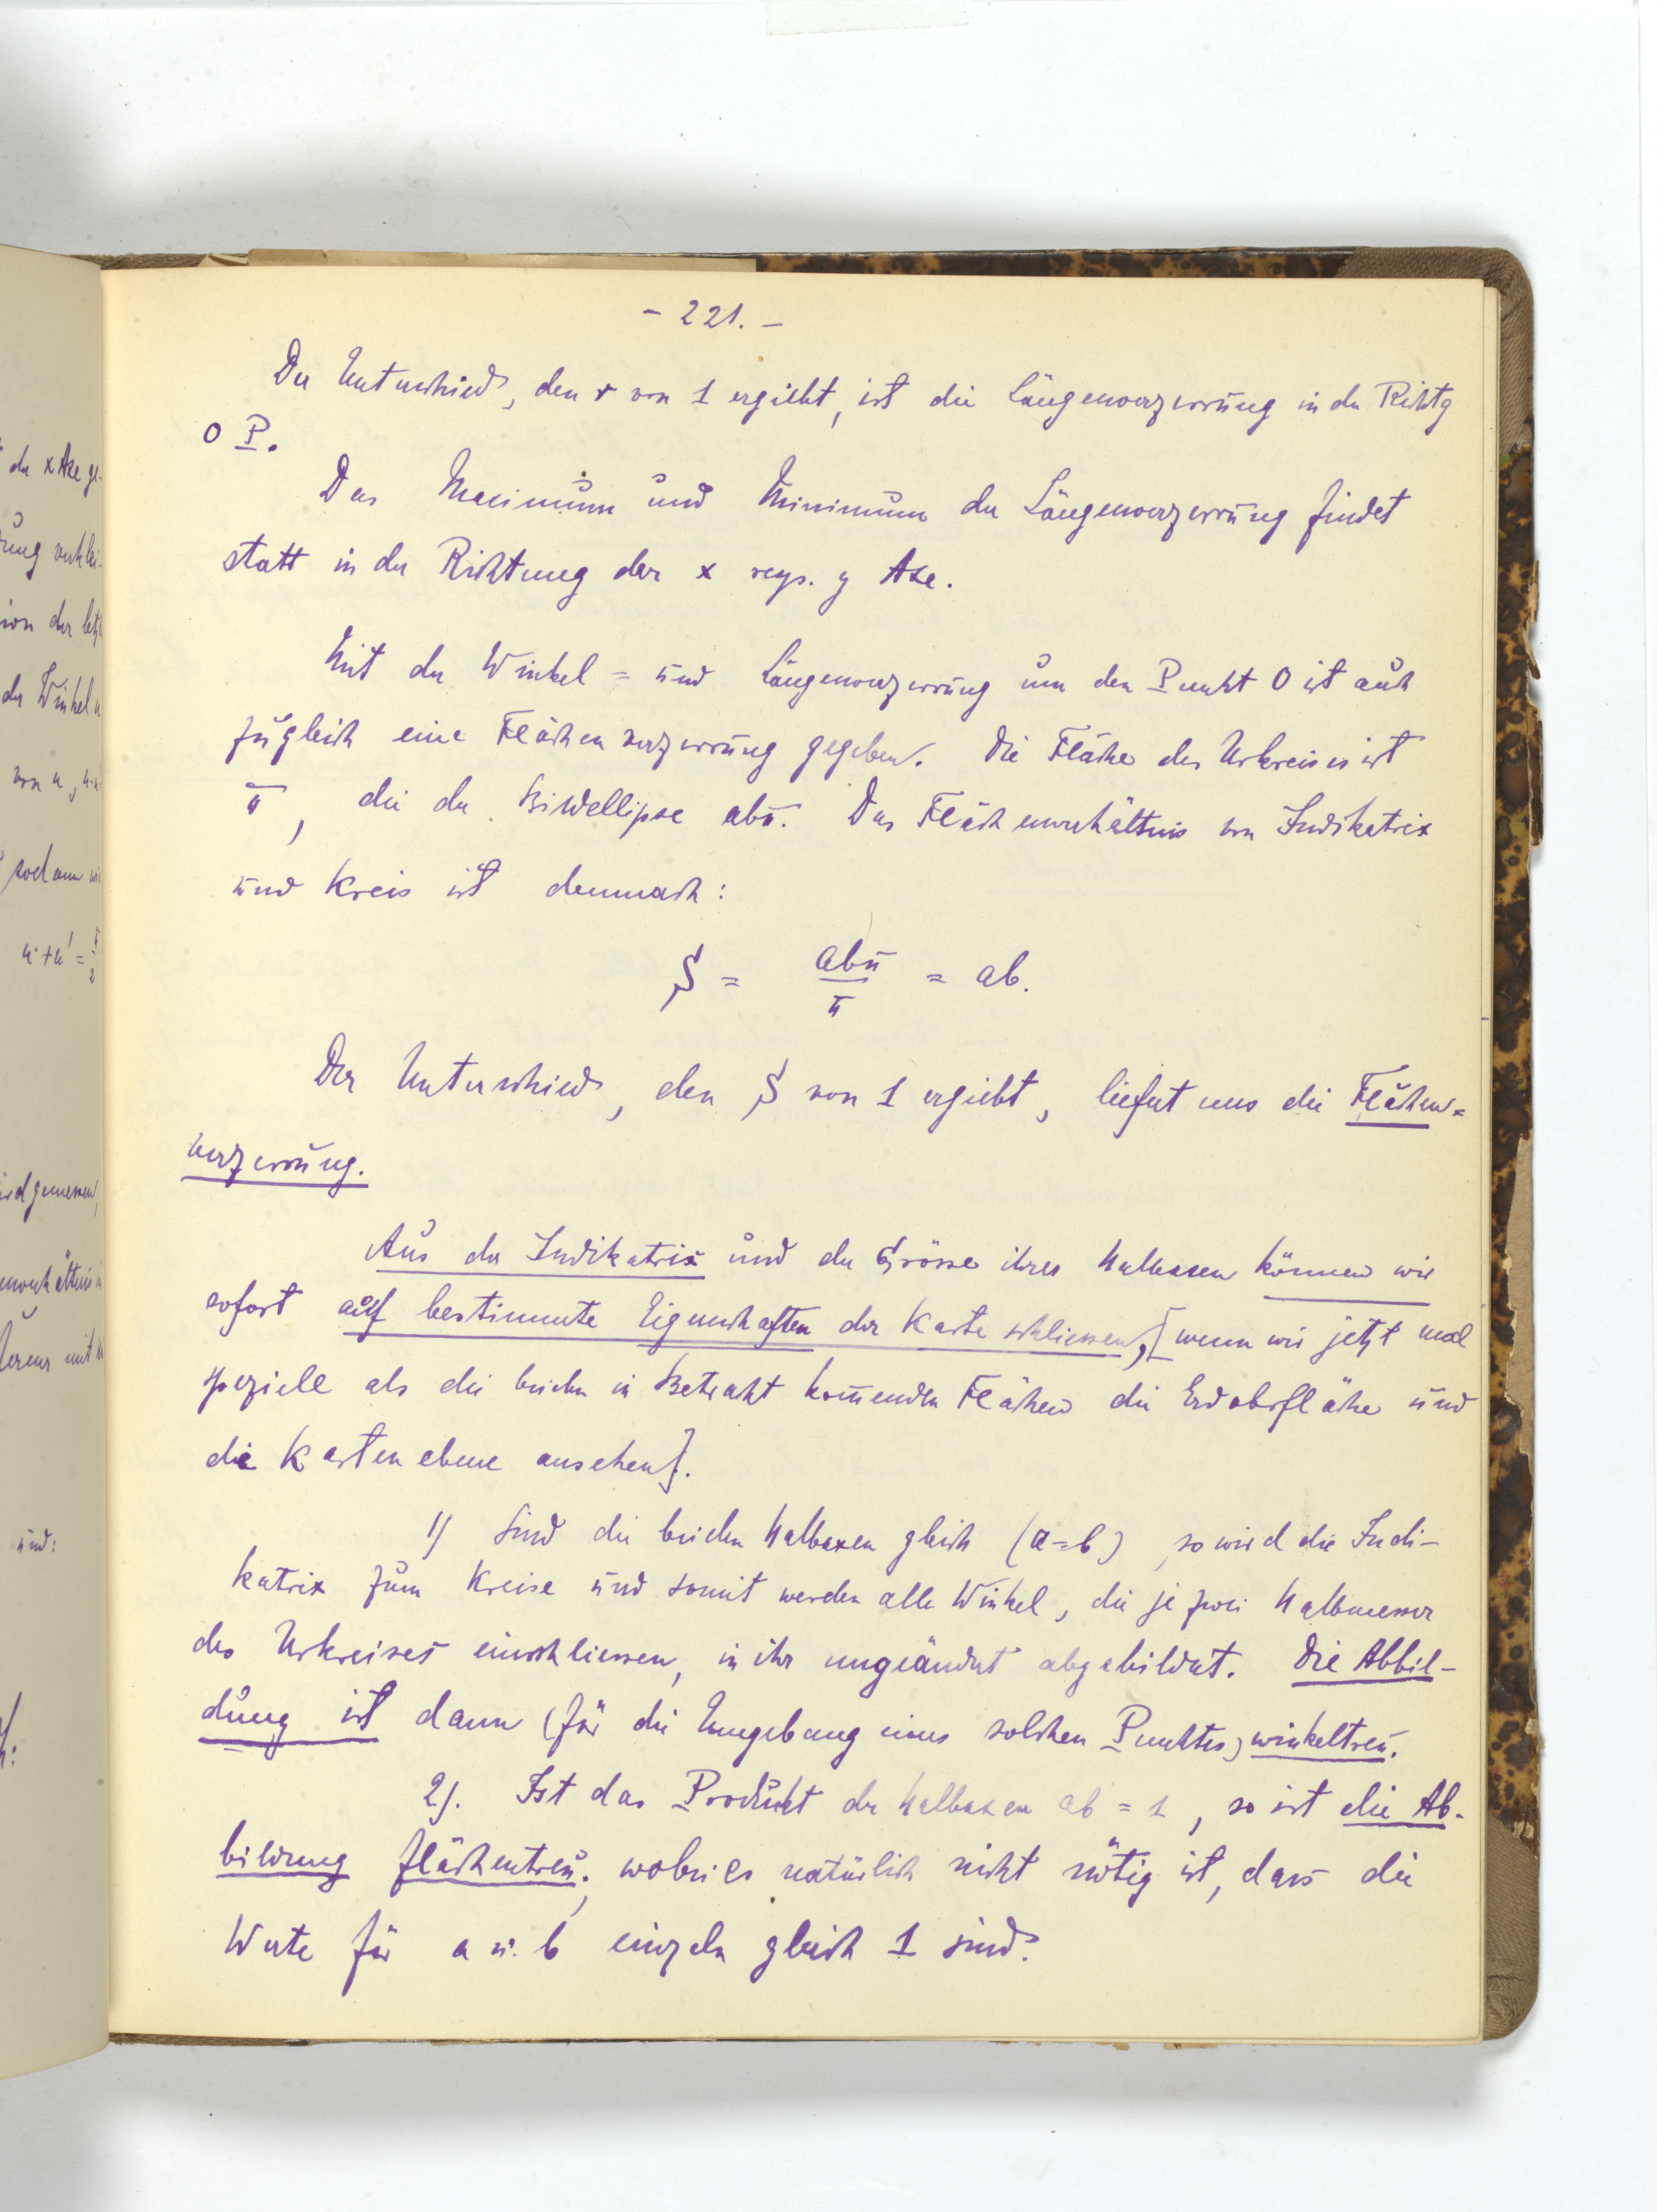 - 221. -
Der Unterschied, den r von 1 ergiebt, ist die Längenverzerrung in der Richtg
O P.
Das Maximum und Minimum der Längenverzerrung findet
statt in der Richtung der x resp. y Axe.
Mit der Winkel= und Längenverzerrung um den Punkt O ist auch
zugleich eine Flächenverzerrung gegeben. Die Fläche des Urkreises ist
π, die der Bildellipse abπ. Das Flächenverhältnis von Indikatrix
und Kreis ist demnach:
S = abπ/π = ab.
Der Unterschied, den S von 1 ergiebt, liefert uns die Flächen=
verzerrung.
Aus der Indikatrix und der Grösse ihrer Halbaxen können wir
sofort auf bestimmte Eigenschaften der Karte schliessen, [wenn wir jetzt mal
speziell als die beiden in Betracht kommenden Flächen die Erdoberfläche und
die Kartenebene ansehen].
1) Sind die beiden Halbaxen gleich (a=b), so wird die Indi-
katrix zum Kreise und somit werden alle Winkel, die je zwei Halbmesser
des Urkreises einschliessen, in ihr ungeändert abgebildet. Die Abbil-
dung ist dann (für die Umgebung eines solchen Punktes) winkeltreu.
2). Ist das Produkt der Halbaxen ab = 1, so ist die Ab-
bildung flächentreu; wobei es natürlich nicht nötig ist, dass die
Werte für a u. b einzeln gleich 1 sind.
der x Axe ge-
von u, u-u'
sodann wi
u + u' = π/2
wird gemessen,
und: